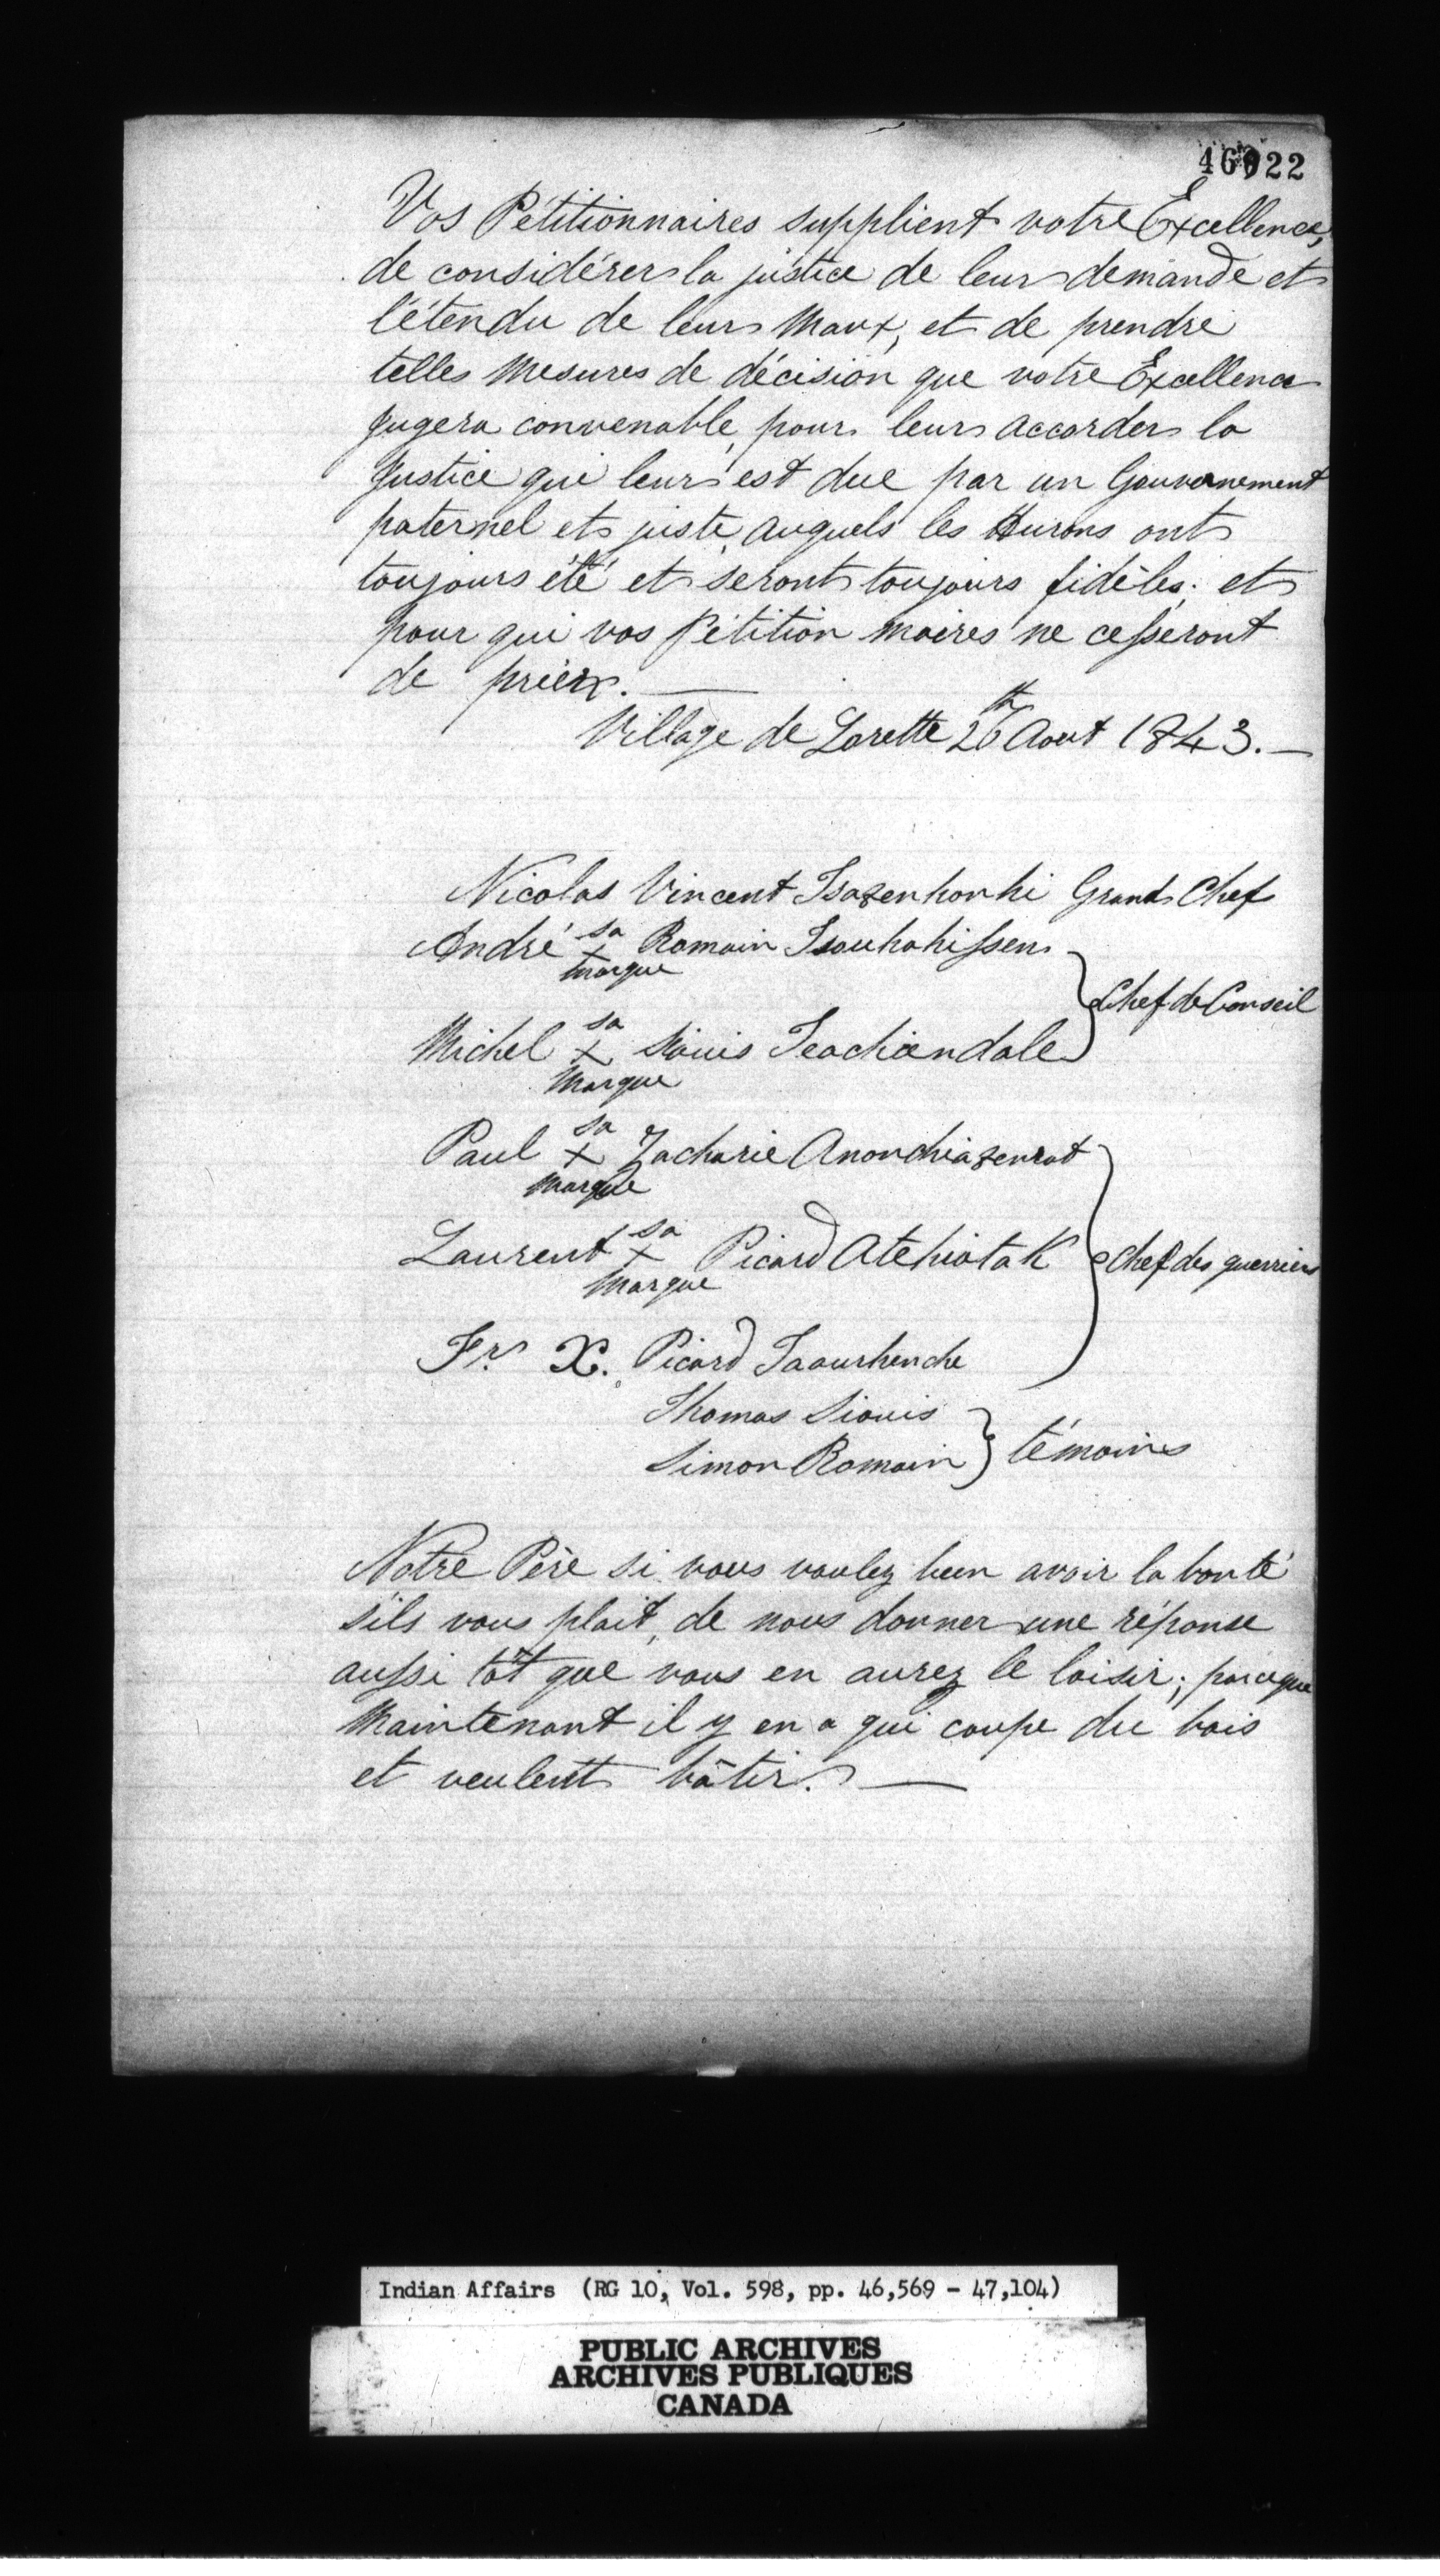 46922
Vos Pétitionnaires supplient votre Excellence,
de considérer la justice de leur demande et
l'étendu de leurs Maux, et de prendre
telles Mesures de décision que votre Excellence
jugera convenable, pour leurs accorder la
justice qui leurs est due par un Gouvernement
paternel et juste, auquels les Hurons ont
toujours été et seront toujours fidèles; et
pour qui vos Pétition naires ne cesseront
de prier.
Village de Lorette 26th Aout 1843.
Nicolas Vincent Tsa8enhonhi Grand Chef
André sa x marque Romain Tsouhahissen
Chef de Conseil
Michel sa x Marque Siouis Teachiendale
Paul sa x Marque Zacharie Anondhia8enrat
Laurent sa x Marque Picard AtehiataK
Chef des guerriers
Frs X. Picard Taourhenche
Thomas Siouis
Simon Romain
témoins
Notre Père si vous voulez bien avoir la bonté
s'ils vous plait, de nous donner une réponse
aussi tôt que vous en aurez le loisir; parceque
Maintenant il y en a qui coupe du bois
et veulent bâtir.
Indian Affairs (RG 10, Vol. 598, pp. 46,569 - 47,104)
PUBLIC ARCHIVES
ARCHIVES PUBLIQUES
CANADA